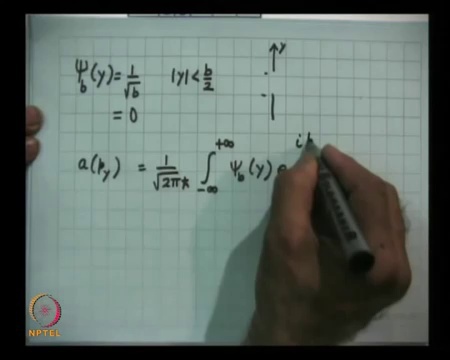 y
Ψ_b(y) = 1/√b |y| < b/2
= 0
a(p_y) = 1/√(2πħ) ∫_{-∞}^{+∞} Ψ_b(y) e^{ip
NPTEL